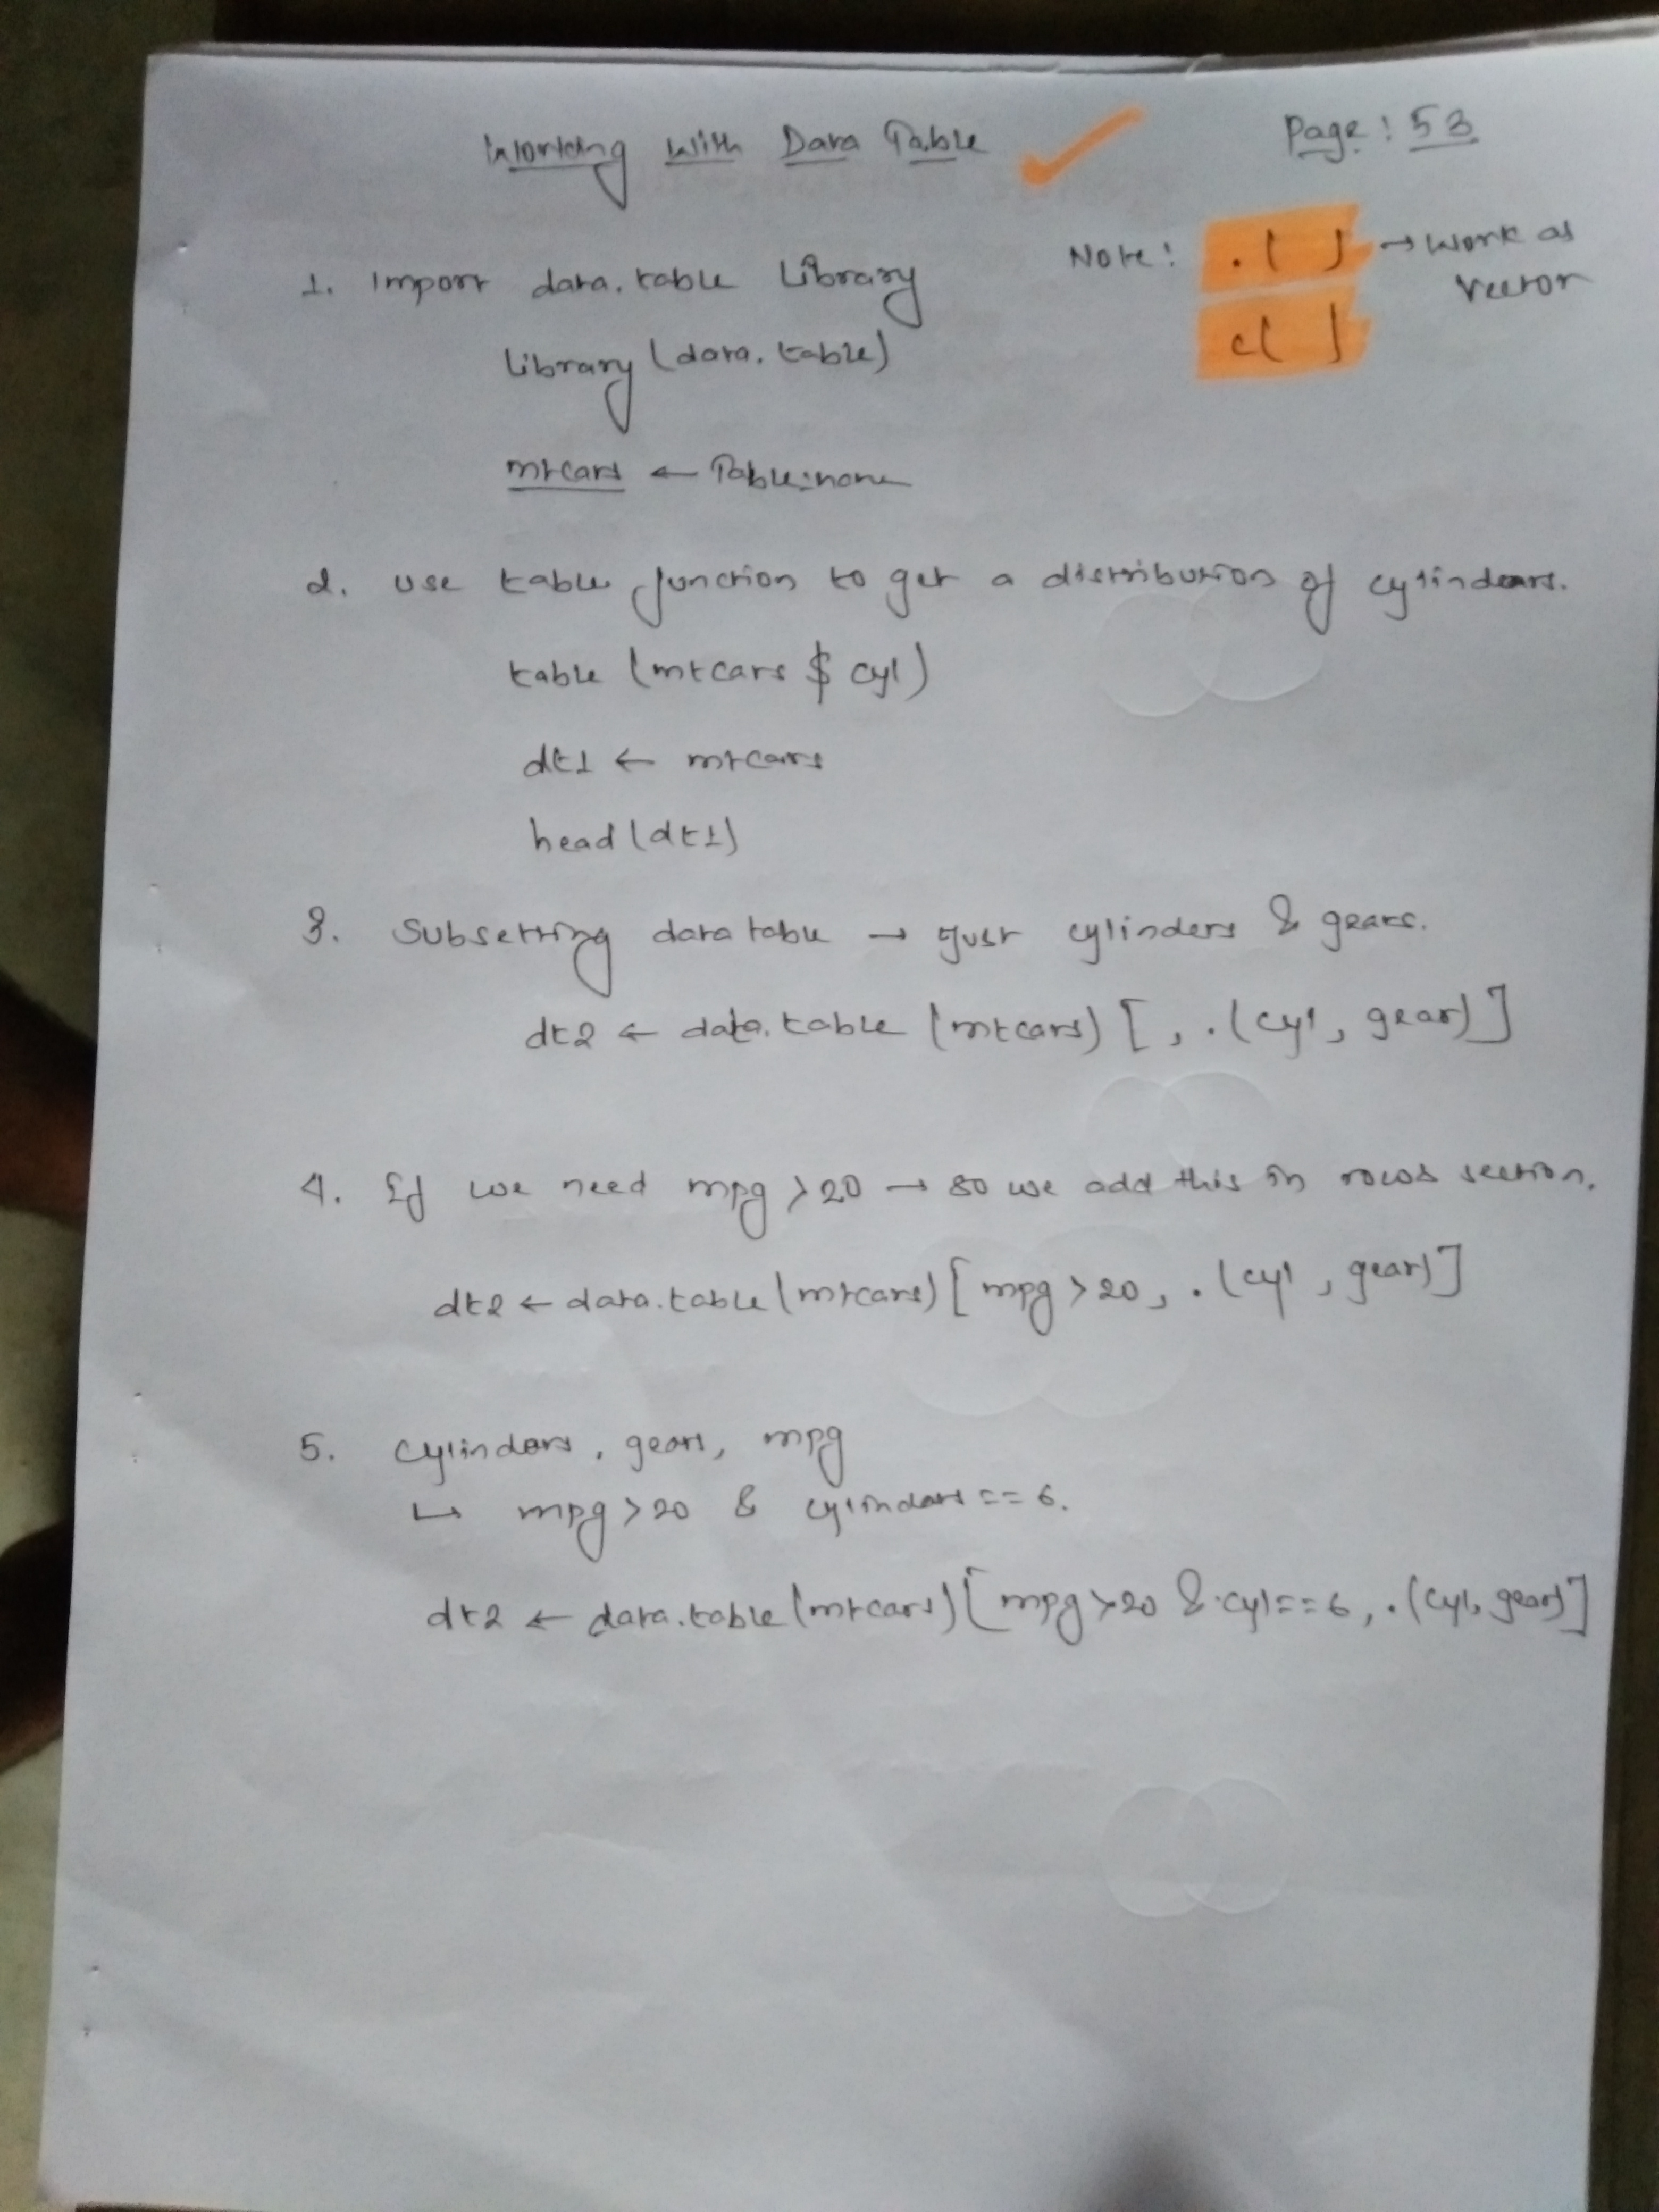 Working With Data Table
Page: 53
Note: .( ) → Work as
vector
c( )
1. Import data.table Library
Library (data.table)
mtcars ← Table:name
2. use table function to get a distribution of cylinders.
table (mtcars $ cyl)
dt1 ← mtcars
head (dt1)
3. Subsetting data table → Just cylinders & gears.
dt2 ← data.table (mtcars) [ , .(cyl, gear)]
4. If we need mpg > 20 → So we add this in rows section.
dt2 ← data.table (mtcars) [ mpg > 20, .(cyl, gear)]
5. cylinders, gears, mpg
↳ mpg > 20 & cylinders == 6.
dt2 ← data.table (mtcars) [ mpg > 20 & cyl == 6, .(cyl, gear)]